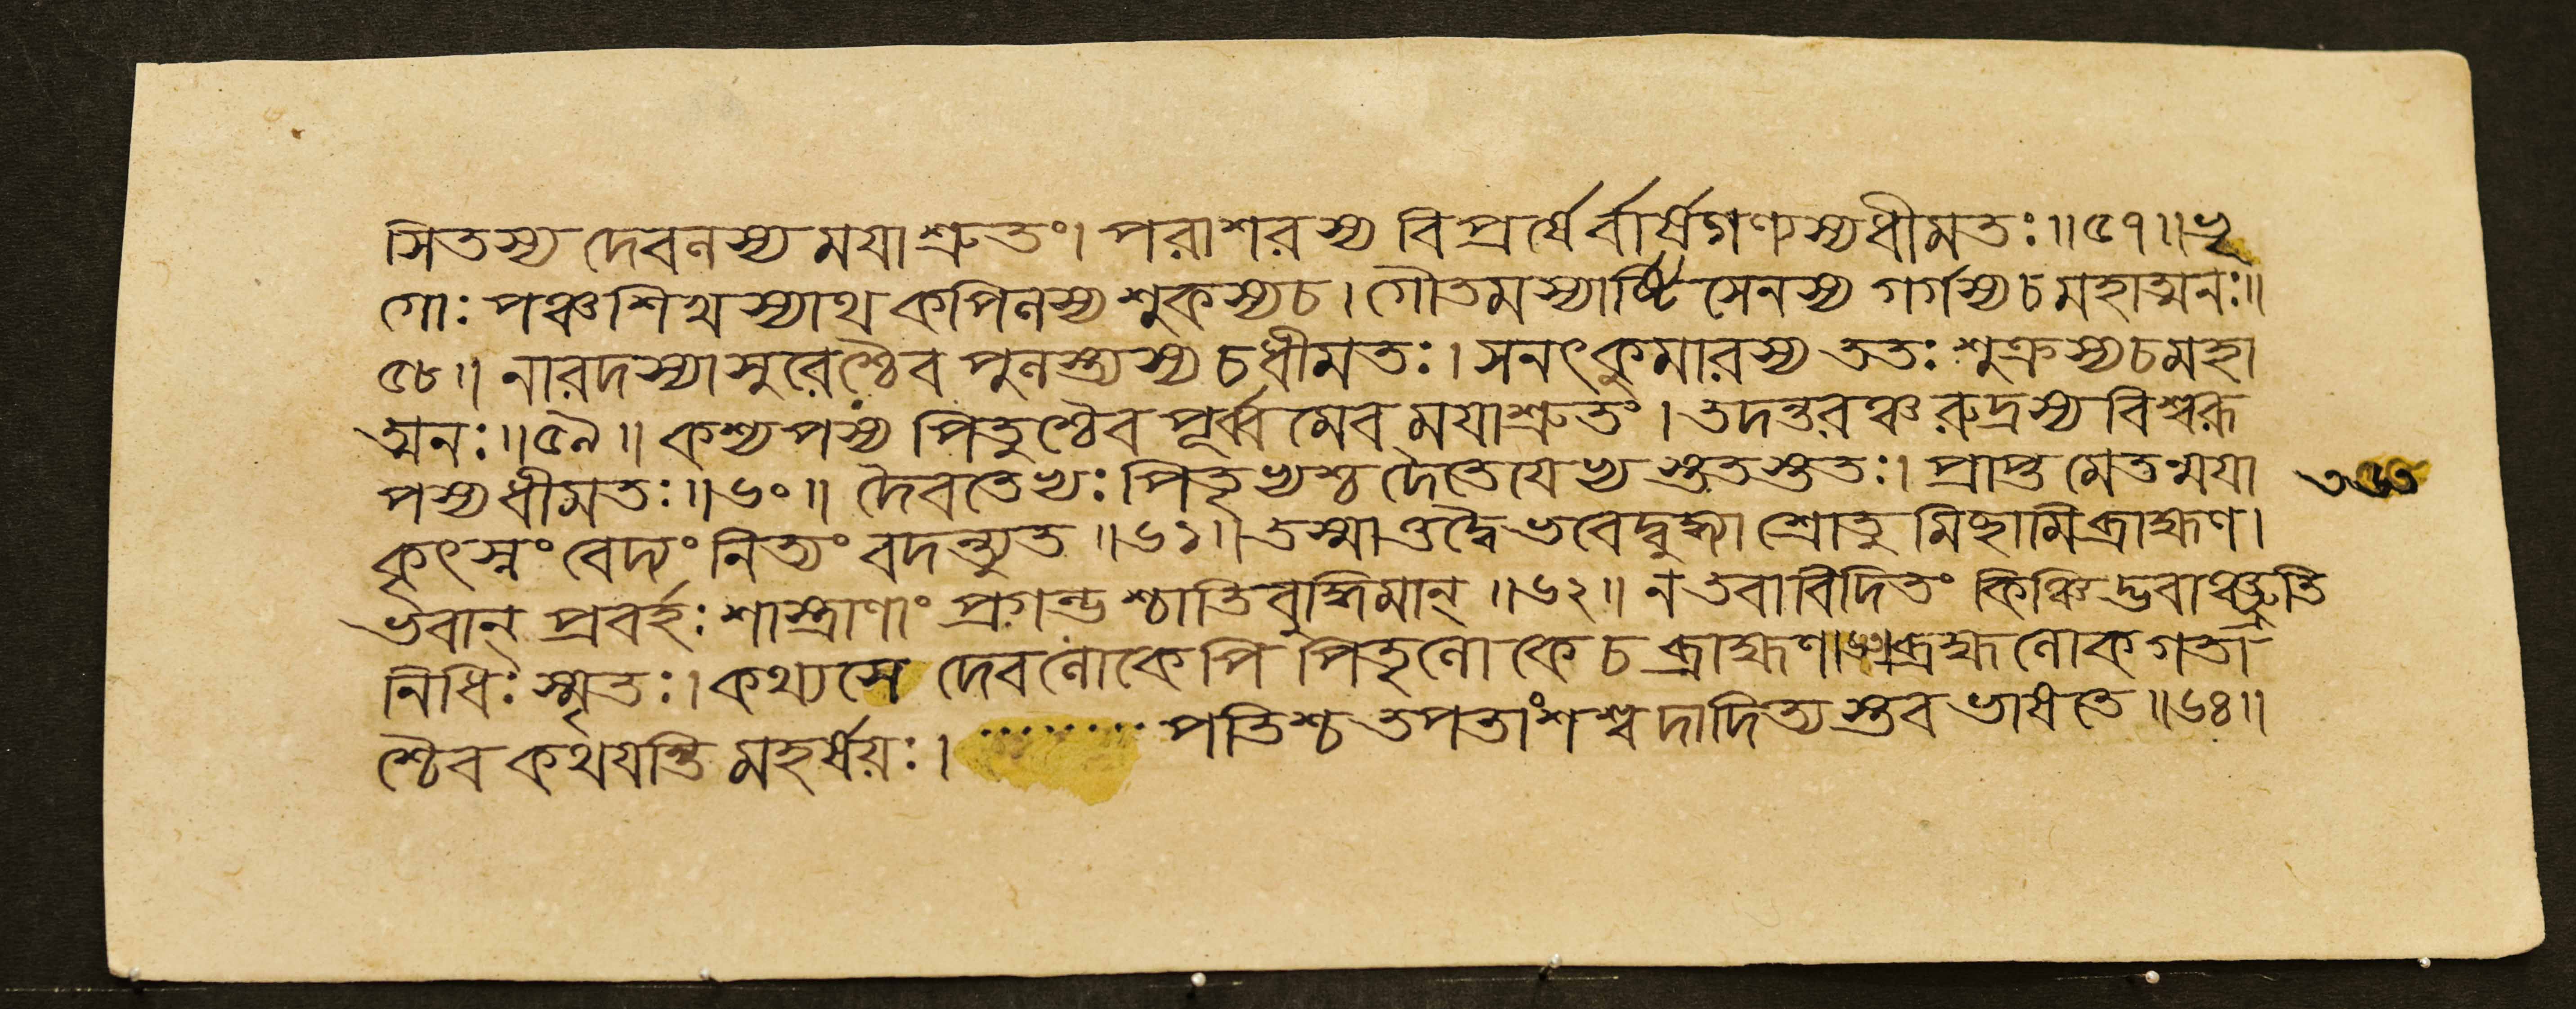 সিতস্য দেবলস্য ময়া শ্রুতং। পরাশরস্য বিপ্রর্ষের্বার্ষগণ্যস্য ধীমতঃ॥৫৭॥ভৃ
গোঃ পঞ্চশিখস্যাথ কপিলস্য শুকস্য চ। গৌতমস্যার্ষ্টিসেনস্য গর্গস্য চ মহাত্মনঃ॥
৫৮॥ নারদস্যাসুরেশ্চৈব পুলস্ত্যস্য চ ধীমতঃ। সনৎকুমারস্য ততঃ শুক্রস্য চ মহা
ত্মনঃ॥৫৯॥ কশ্যপস্য পিতুশ্চৈব পূর্ব্বমেব ময়া শ্রুতং। তদন্তরঞ্চ রুদ্রস্য বিশ্বরূ
পস্য ধীমতঃ॥৬০॥ দৈবতেভ্যঃ পিতৃভ্যশ্চ দৈতেয়েভ্যস্ততস্ততঃ। প্রাপ্তমেতন্ময়া
কৃৎস্নং বেদ্যং নিত্যং বদন্ত্যুত॥৬১॥ তস্মাত্তদ্বৈ ভবেদ্বুদ্ধ্যা শ্রোতুমিচ্ছামি ব্রাহ্মণ।
ভবান্ প্রবর্হঃ শাস্ত্রাণাং প্রগল্ভশ্চাতিবুদ্ধিমান্॥৬২॥ ন তবাবিদিতং কিঞ্চিদ্ভবাঞ্ছ্রুতি
নিধিঃ স্মৃতঃ। কথ্যসে দেবলোকেপি পিতৃলোকে চ ব্রাহ্মণ।৬৩।ব্রহ্মলোকগতা
শ্চৈব কথয়ন্তি মহর্ষয়ঃ। ......... পতিশ্চ তপতাং শশ্বদাদিত্যস্তব ভাষতে॥৬৪॥